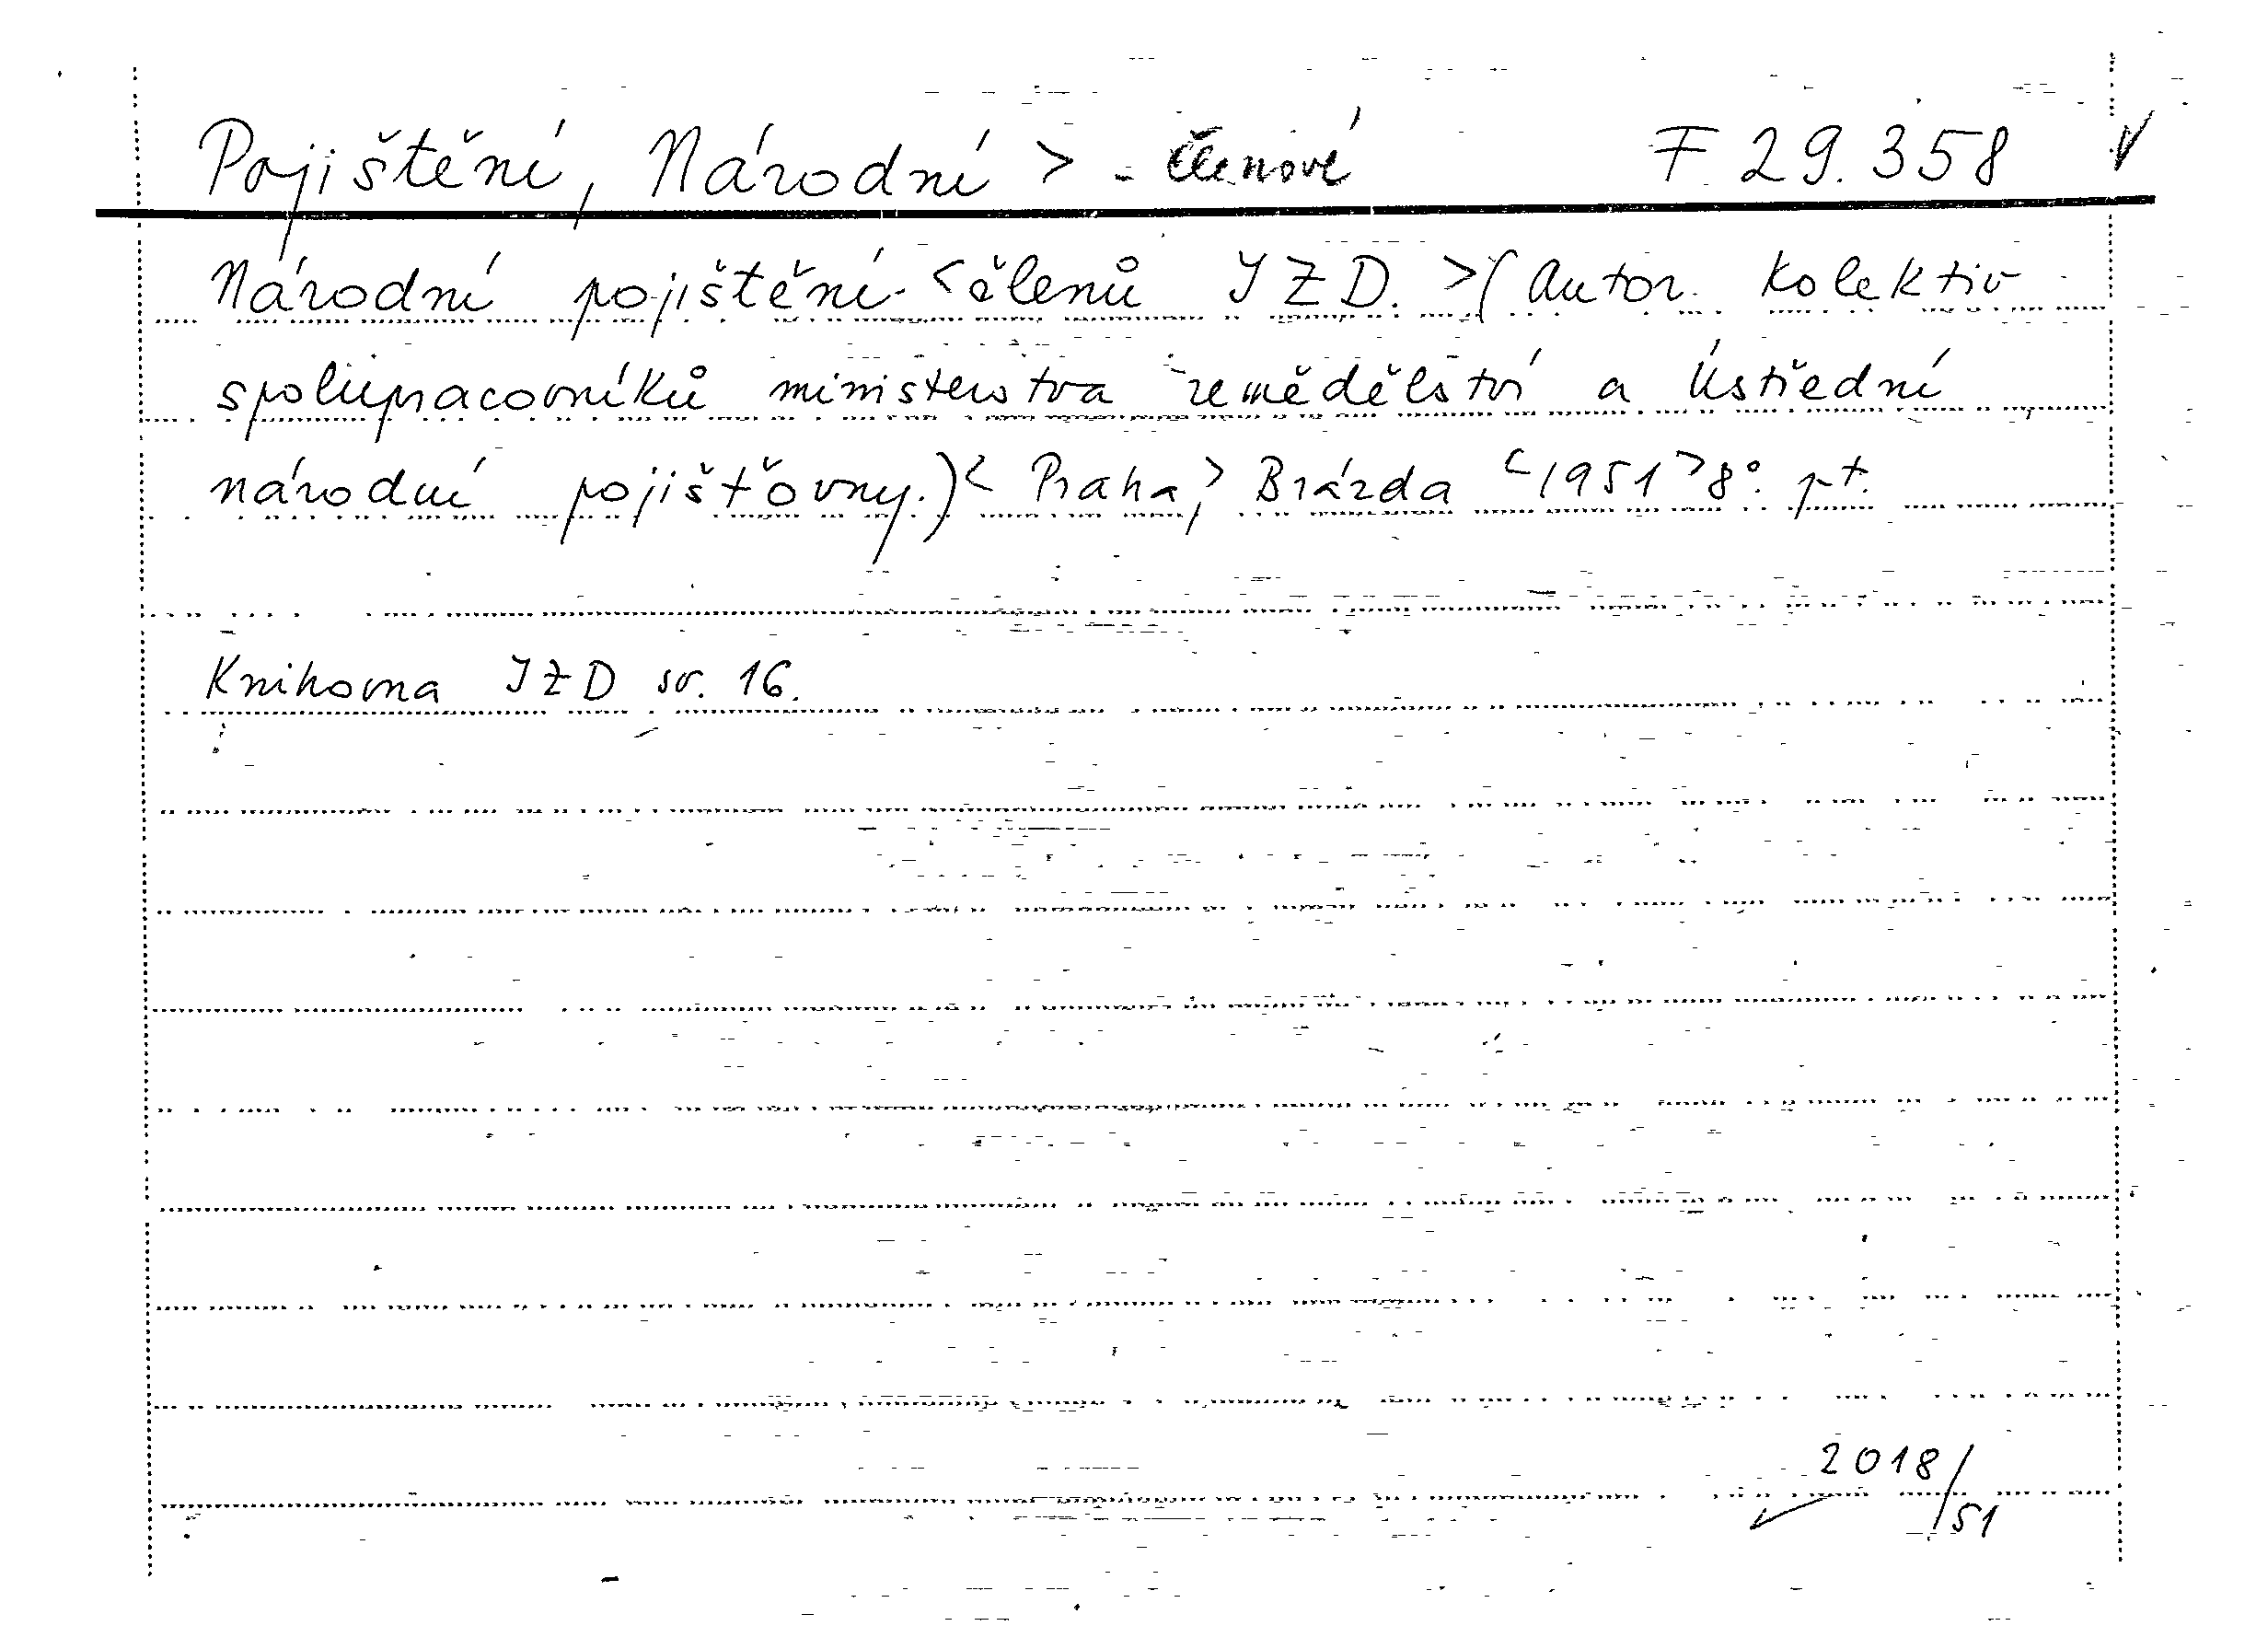 Pojištění, Národní > - členové F 29.358 √
Národní pojištění <členů JZD. >(Autor. kolektiv
spolupracovníků ministerstva zemědělství a Ústřední
národní pojišťovny.)< Praha,> Brázda <1951>8°. pt.
Knihovna JZD sv. 16.
2018/51